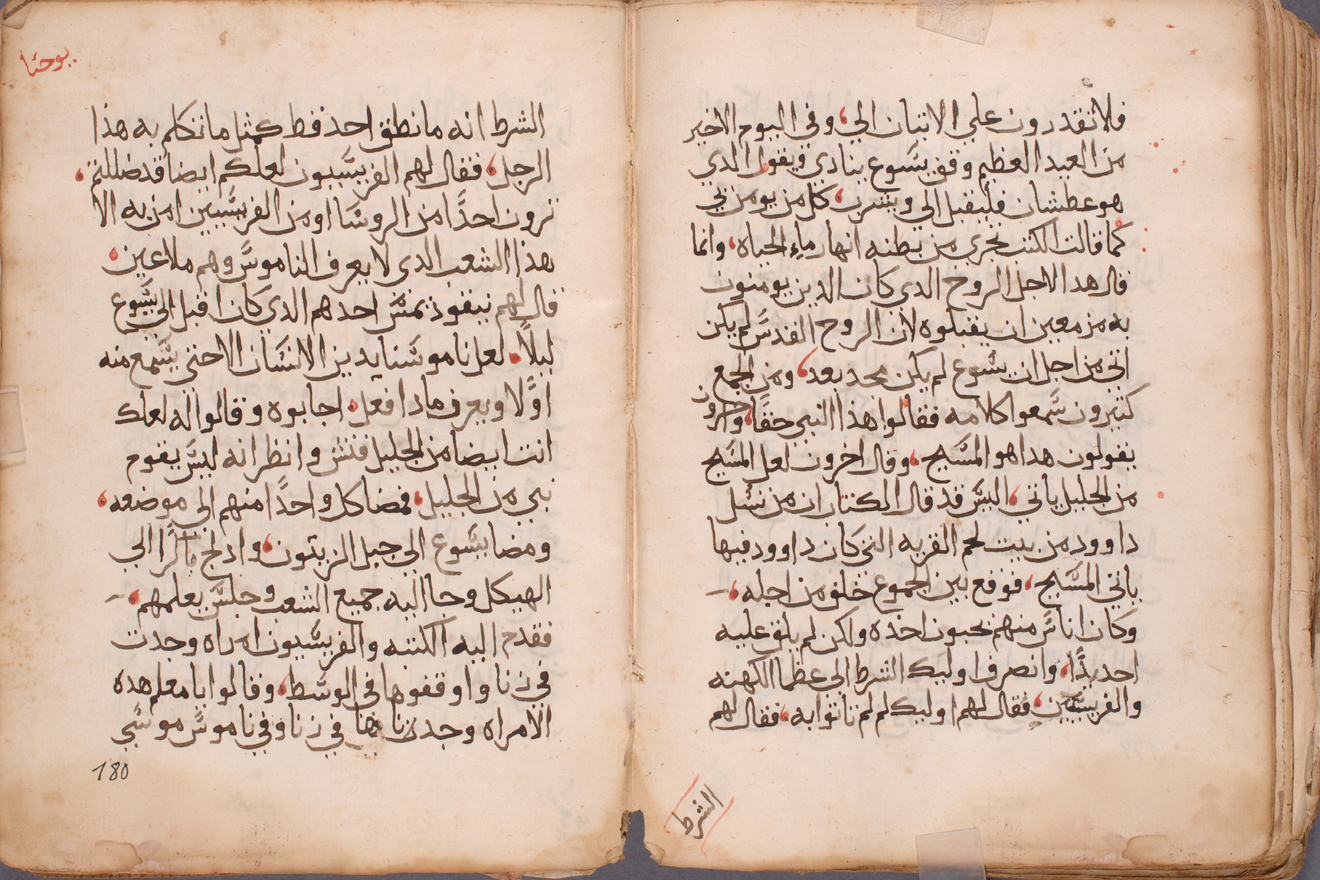 فلا تقدرون علي الاتيان الي، وفي اليوم الاخير
من العيد العظيم وقف يسوع ينادي ويقول الدي
هو عطشان فليقبل الي ويشرب، كل من يومن بي
كما قالت الكتب تجري من بطنه انهار ماء الحياه، وانما
قال هدا لاجل الروح الدي كان الدين يومنون
به مزمعين ان يقبلوه لان الروح القدس لم يكن
اتي من اجل ان يسوع لم يكن مجد بعد، ومن الجمع
كتيرون سمعوا كلامه فقالوا هذا النبي حقا، واخرون
يقولون هدا هو المسيح، وقال اخرون لعل المسيح
من الجليل ياتي، اليس قد قال الكتاب ان من نسل
داوود من بيت لحم القريه التي كان داوود فيها
ياتي المسيح، فوقع بين الجموع خلف من اجله،
وكان اناس منهم يحبون اخده ولكن لم يلق عليه
احد يدًا، وانصرف اوليك الشرط الى عظما الكهنه
والفريسيين، فقال لهم اوليك لم لم تاتوا به، فقال لهم
الشرط
يوحنا
الشرط انه ما نطق احد قط كمثل ما تكلم به هذا
الرجل، فقال لهم الفريسيون لعلكم ايضا قد ضللتم،
ترون احدًا من الروسا او من الفريسيين امن به الا
هذا الشعب الدي لا يعرف الناموس وهم ملاعين،
قال لهم نيقوذيمس احدهم الدي كان اقبل الي يسوع
ليلاً، لعل ناموسنا يدين الانسان الا حتي يسمع منه
اولا ويعرف مادا فعل، اجابوه وقالوا له لعلك
انت ايضا من الجليل فتش وانظر انه ليس يقوم
نبي من الجليل، فمضا كل واحدًا منهم الي موضعه،
ومضا يسوع الي جبل الزيتون، وادلج باكرًا الي
الهيكل وجا اليه جميع الشعب وجلس يعلمهم،
فقدم اليه الكتبه والفريسيون امراه وجدت
في زنا واوقفوها في الوسط، وقالوا يا معلم هده
الامراه وجدناها في زنا وفي ناموس موسي
180